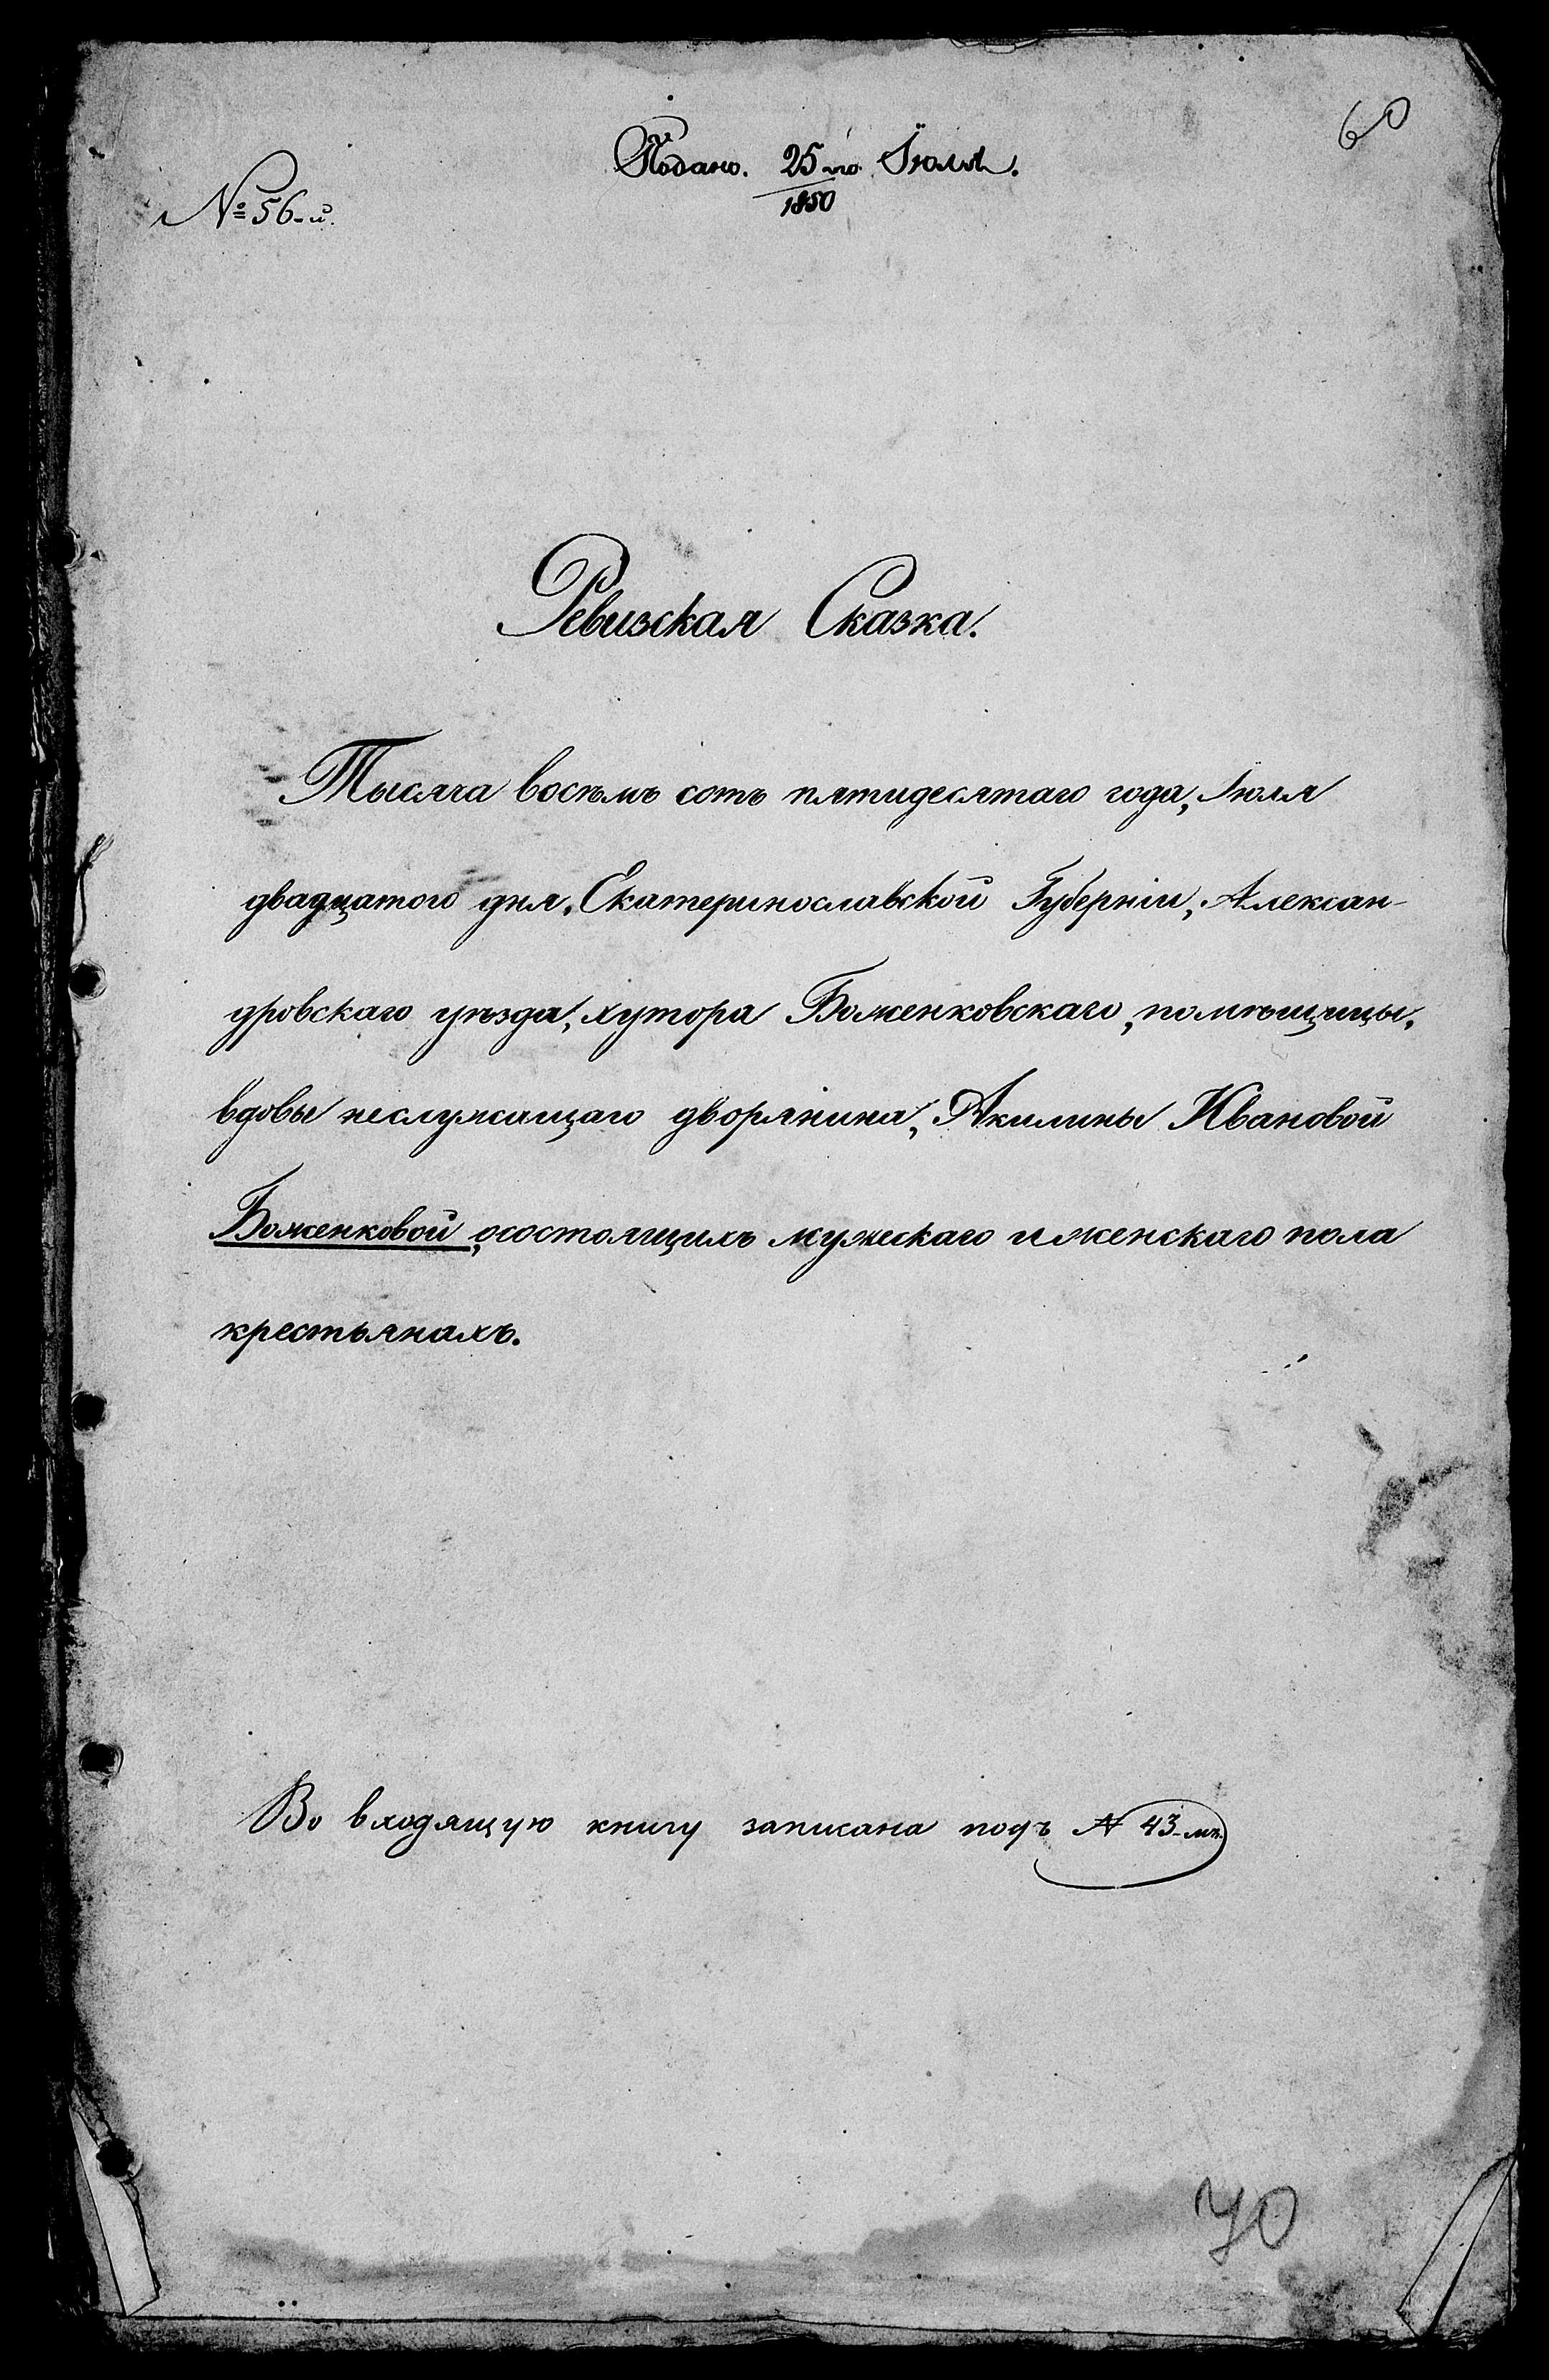 60
Подано. 25 го Іюля.
1850
№ 56-й.
Ревизская Сказка.
Тысяча восемь сотъ пятидесятаго года, Іюля
двадцатого дня, Екатеринославской Губерніи, Алексан-
дровскаго уѣзда, хутора Боженковскаго, помѣщицы,
вдовы неслужащаго дворянина, Акилины Ивановой
Боженковой, осостоящихъ мужескаго и женскаго пола
крестьянахъ.
Во входящую книгу записана подъ № 43-мъ.
70